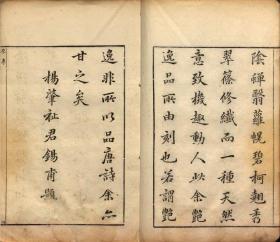 陰嬋翳蘿幌碧柯翹秀
翠篠修纖而一種天然
意致機趣動人此余艷
逸品所由刻也若謂艷
逸非所以品唐詩余亦
甘之矣
楊肇祉君錫甫題